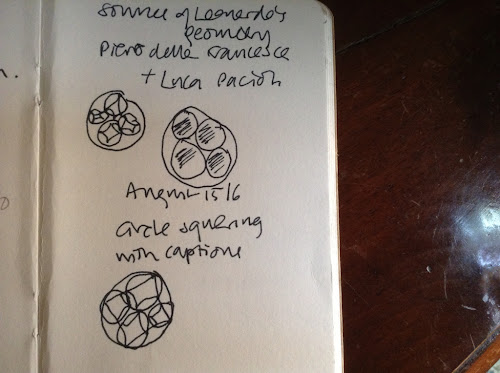 sources of Leonardo's
geometry
Piero della Francesca
+ Luca Pacioli
August 1516
circle squaring
with captions